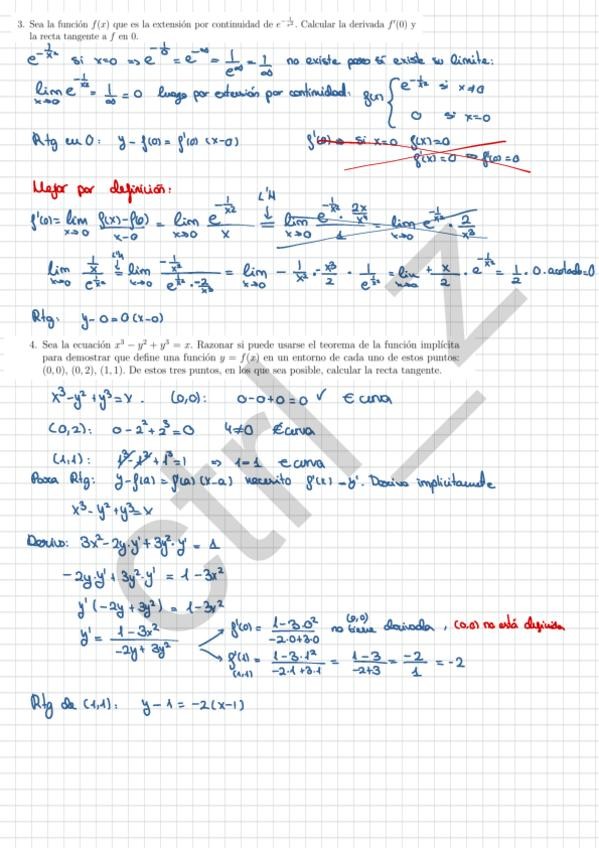 3. Sea la función f(x) que es la extensión por continuidad de e^{-1/x²}. Calcular la derivada f'(0) y
la recta tangente a f en 0.
e^{-1/x²} si x=0 ⇒ e^{-1/0} = e^{-∞} = 1/e^∞ = 1/∞ no existe pero sí existe su límite:
lim_{x→0} e^{-1/x²} = 1/∞ = 0 luego por extensión por continuidad: f(x) { e^{-1/x²} si x≠0
0 si x=0
Rtg en 0: y - f(0) = f'(0) (x-0) f'(0) → si x=0 f(x)=0
f'(x)=0 ⇒ f'(0)=0
Mejor por definición:
f'(0) = lim_{x→0} (f(x)-f(0))/(x-0) = lim_{x→0} e^{-1/x²}/x = L'H lim_{x→0} (e^{-1/x²} · 2x/x⁴)/1 = lim_{x→0} e^{-1/x²} · 2/x³
lim_{x→0} (1/x)/e^{1/x²} = L'H lim_{x→0} (-1/x²)/(e^{1/x²} · -2/x³) = lim_{x→0} - 1/x² · - x³/2 · 1/e^{1/x²} = lim_{x→0} + x/2 · e^{-1/x²} = 1/2 · 0 · acotado = 0
Rtg: y-0=0(x-0)
4. Sea la ecuación x³ − y² + y³ = x. Razonar si puede usarse el teorema de la función implícita
para demostrar que define una función y = f(x) en un entorno de cada uno de estos puntos:
(0, 0), (0, 2), (1, 1). De estos tres puntos, en los que sea posible, calcular la recta tangente.
x³-y²+y³=x. (0,0): 0-0+0=0 ✓ ∈ curva
(0,2): 0-2²+2³=0 4≠0 ∉ curva
(1,1): 1³-1²+1³=1 ⇒ 1=1 ∈ curva
Para Rtg: y-f(a) = f'(a) (x-a) necesito f'(x) = y'. Derivo implícitamente
x³-y²+y³=x
Derivo: 3x²-2y·y'+3y²·y' = 1
-2y·y'+3y²·y' = 1-3x²
y'(-2y+3y²) = 1-3x²
y' = (1-3x²)/(-2y+3y²) f'(0) = (1-3·0²)/(-2·0+3·0) (0,0) no tiene derivada, (0,0) no está definida
f'(1) (1,1) = (1-3·1²)/(-2·1+3·1) = (1-3)/(-2+3) = -2/1 = -2
Rtg de (1,1): y-1=-2(x-1)
ctrl_z